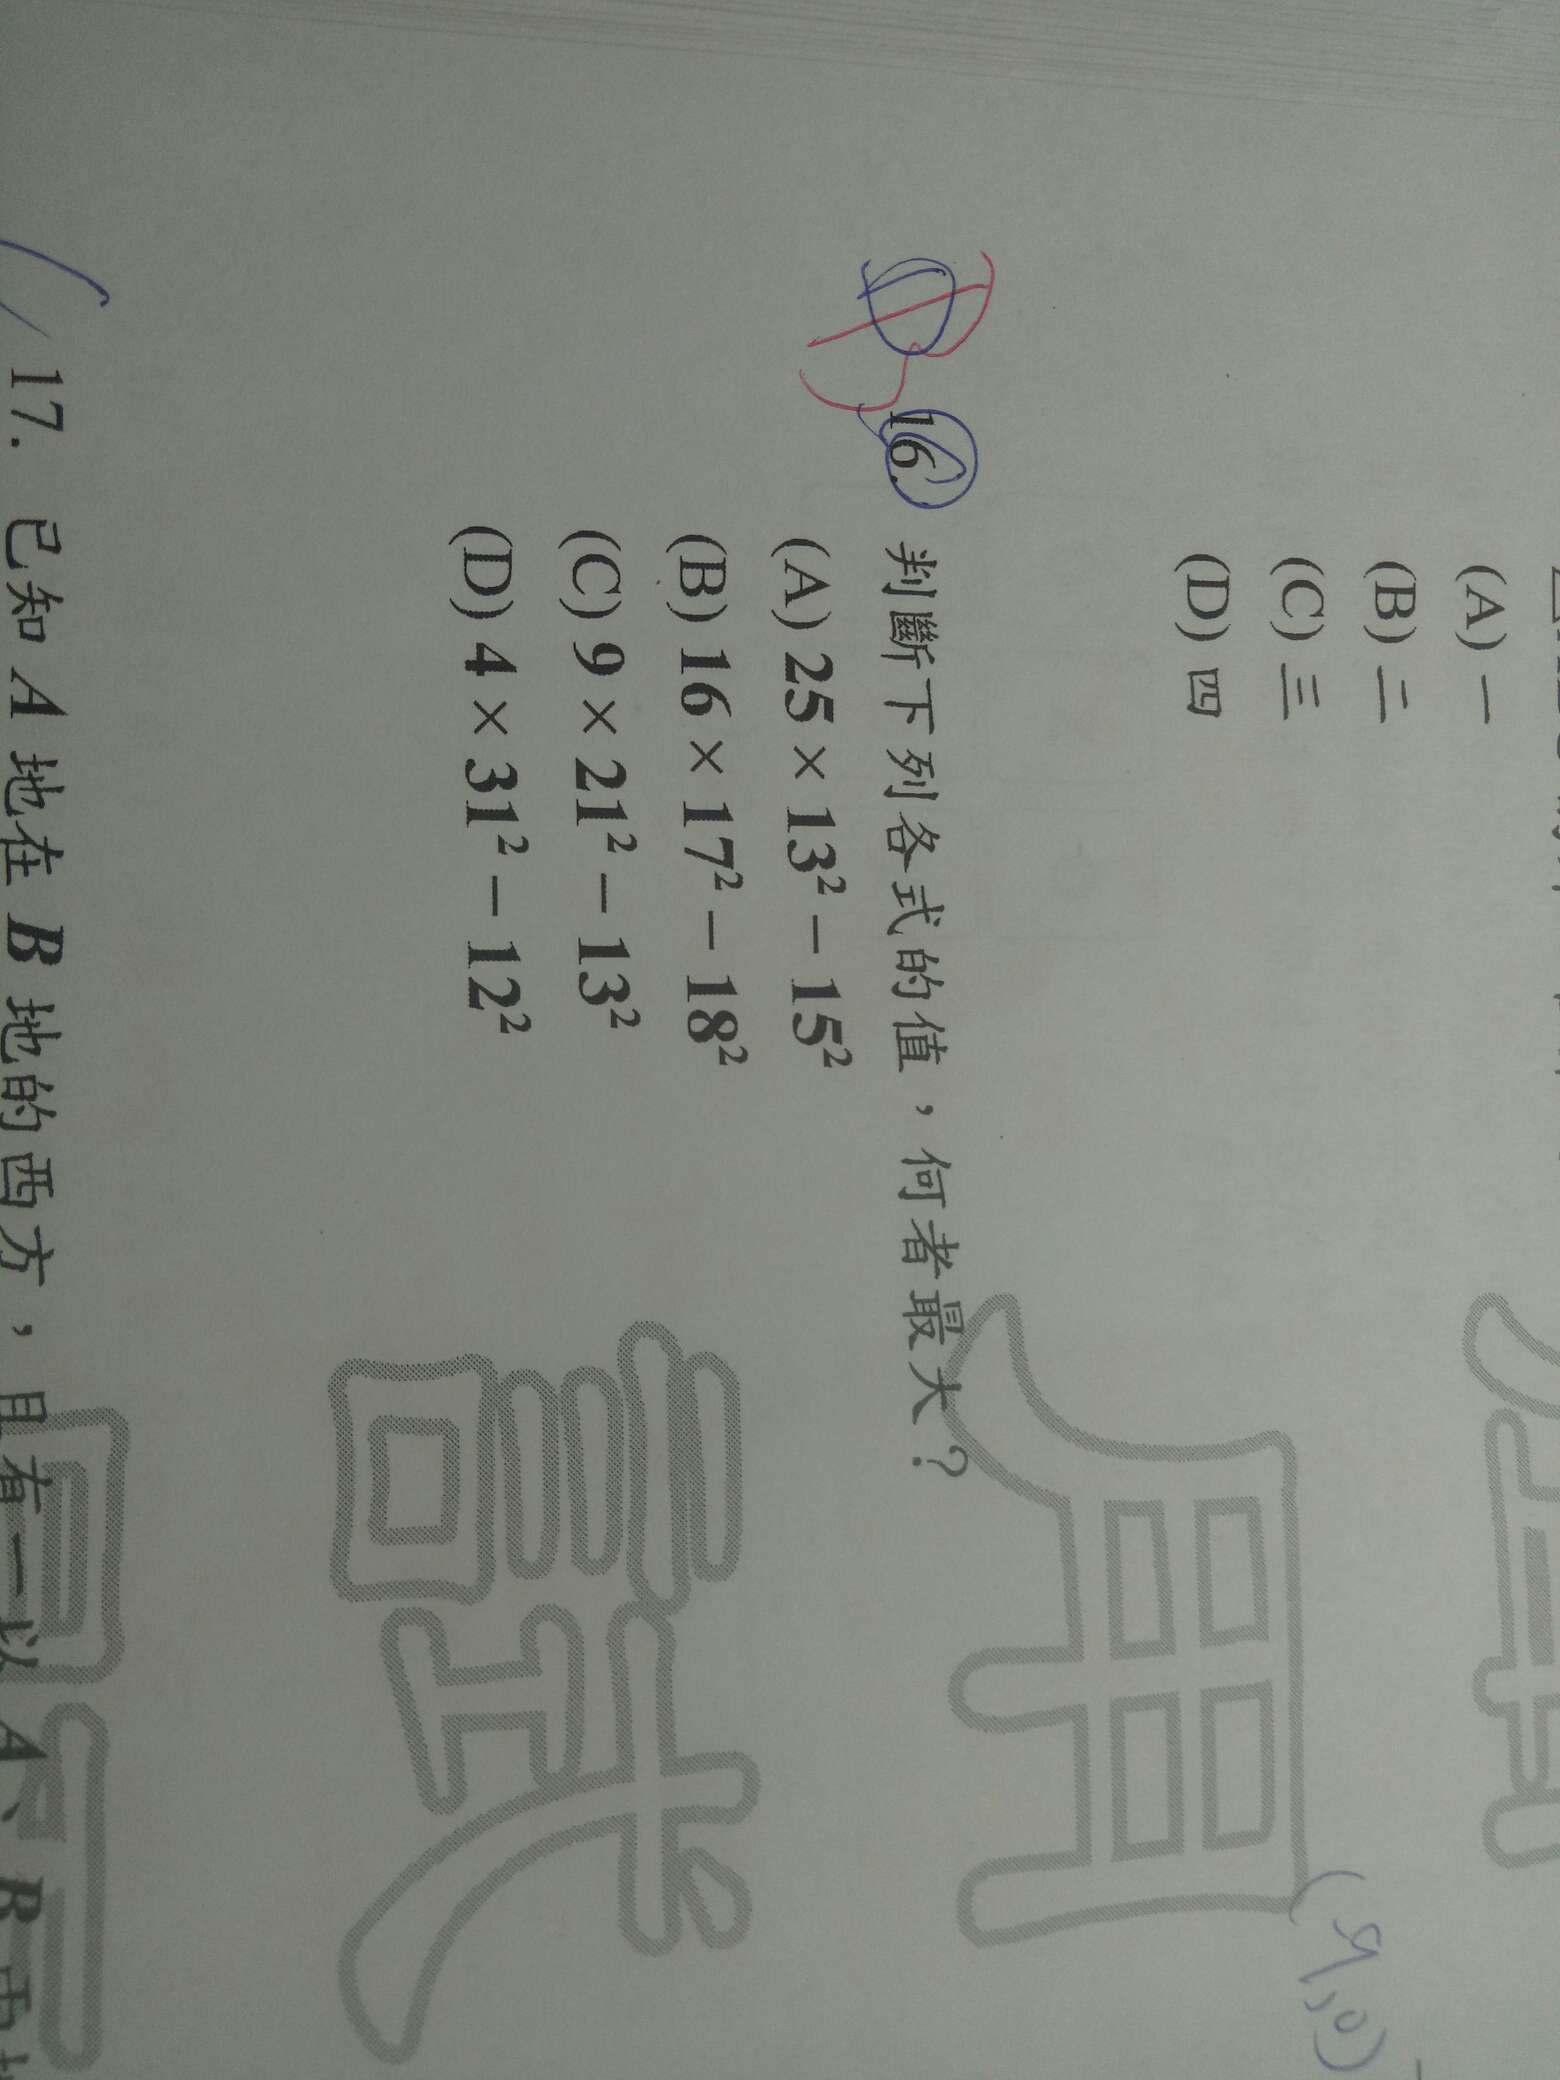 (A) 一
(B) 二
(C) 三
(D) 四
(9,0)
16. 判斷下列各式的值，何者最大？
(A) 25 × 13² − 15²
(B) 16 × 17² − 18²
(C) 9 × 21² − 13²
(D) 4 × 31² − 12²
17. 已知 A 地在 B 地的西方，且有一以 A、B 兩地